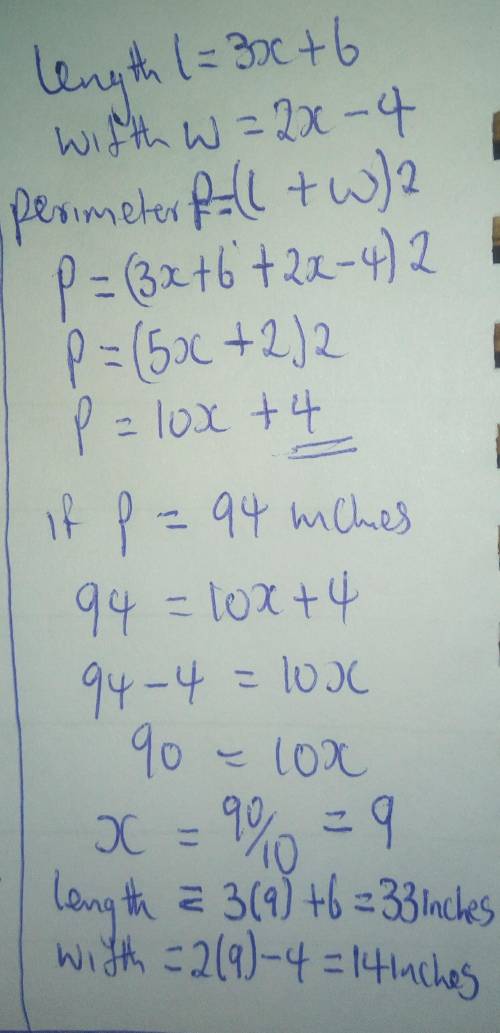 length l = 3x + 6
with w = 2x - 4
perimeter P = (l + w) 2
P = (3x + 6 + 2x - 4) 2
P = (5x + 2) 2
P = 10x + 4
if P = 94 inches
94 = 10x + 4
94 - 4 = 10x
90 = 10x
x = 90/10 = 9
length = 3(9) + 6 = 33 inches
with = 2(9) - 4 = 14 inches